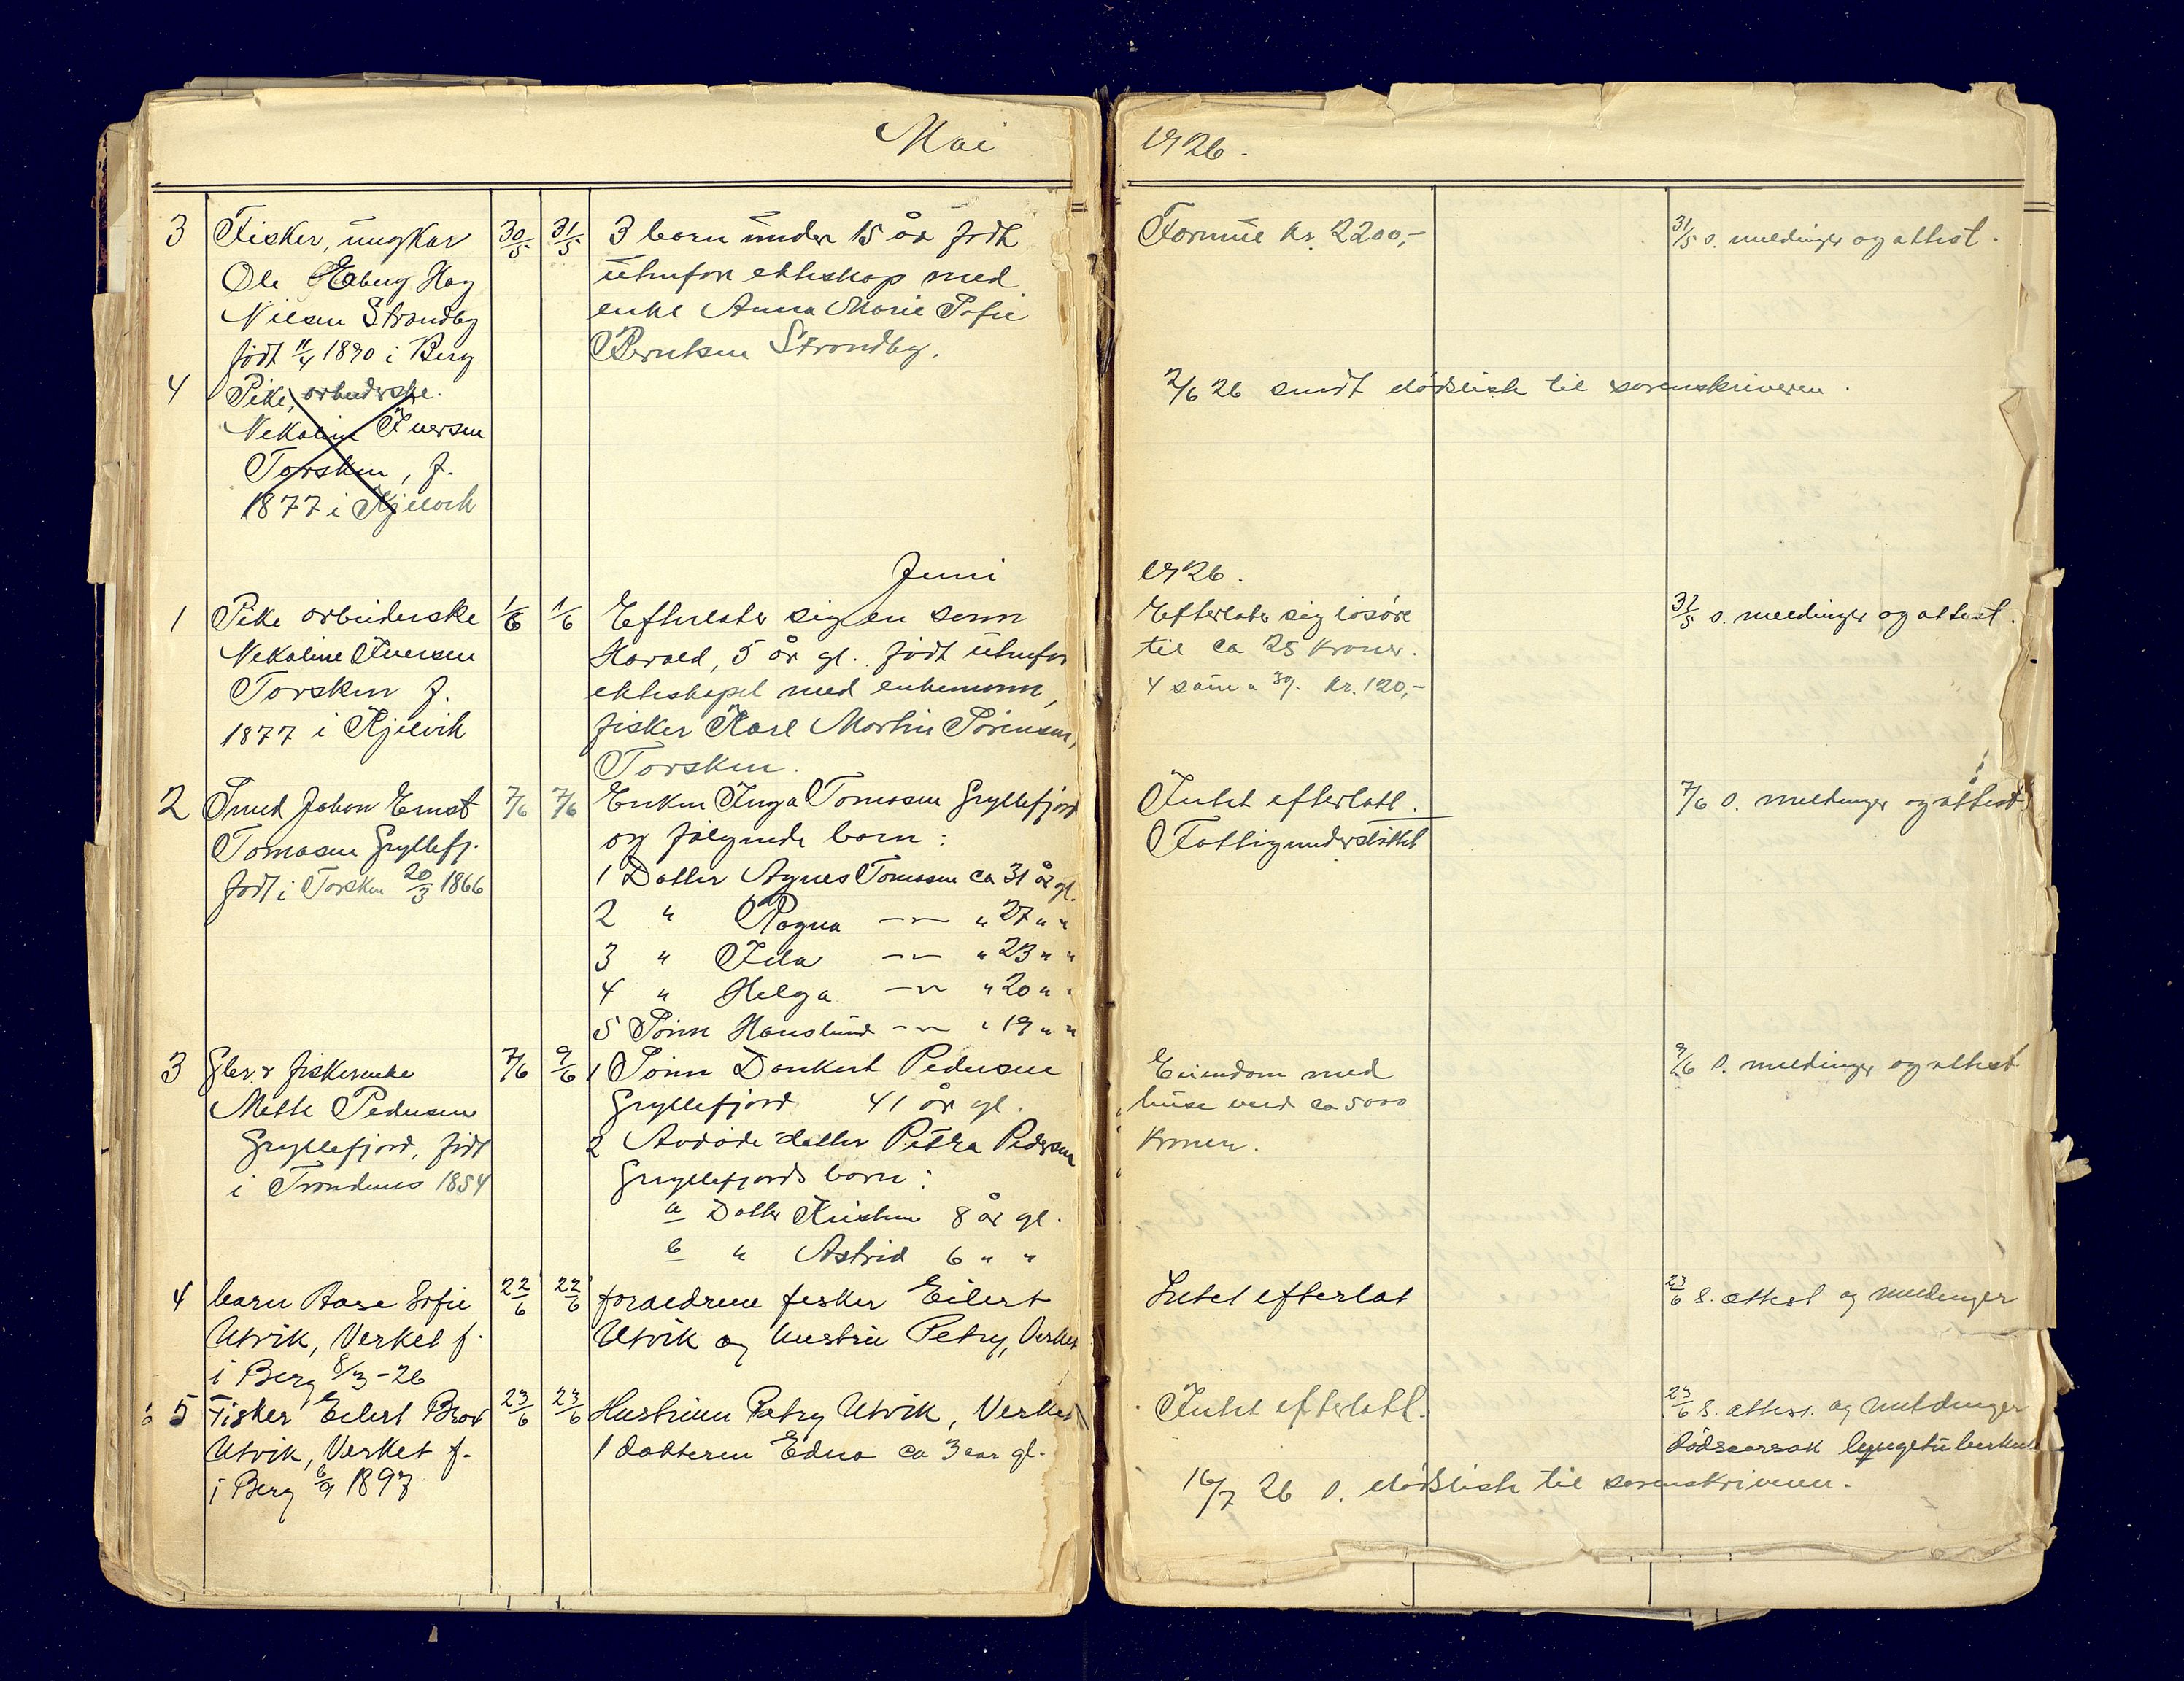 Mai
1926.
3 Fisker, ungkar 30/5 31/5 3 born under 15 år født Formue kr. 2200,- 31/5 s. meldinger og attest.
Ole Hag utenfor ekteskap med
Nilsen Strandby enke Anna Marie Sofie
født 11/4 1890 i Berg Berntsen Strandby.
4 Pike, arbeiderske. 2/6 26 sendt dødsliste til sorenskriveren.
Nekoline Iversen
Torsken, f.
1877 i Kjelvik
Juni
1926.
1 Pike arbeiderske 1/6 1/6 Efterlater sig en sønn Efterlater sig løsøre 31/5 s. meldinger og attest.
Nekoline Iversen Harald, 5 år gl. født utenfor til ca 25 kroner.
Torsken f. ekteskapet med enkemann, 4 kr. 120,-
1877 i Kjelvik fisker Karl Martin Sørensen,
Torsken.
2 Smed Johan Ernst 7/6 7/6 Enken Inga Tomasen Gryllefjord Intet efterlatt. 7/6 s. meldinger og attest
Tomasen Gryllefj. og følgende born: Fattigunderstøttet
født i Torsken 20/3 1866 1 Datter Agnes Tomasen ca 31 år gl.
2 " Ragna —"— " 27 " "
3 " Ida —"— " 23 " "
4 " Helga —"— " 20 " "
5 Sønn Hanslund —"— " 19 " "
3 Gbr. & fiskerenke 7/6 9/6 1 Sønn Dankert Pedersen Eiendom med 9/6 s. meldinger og attest
Mette Pedersen Gryllefjord 41 år gl. huse verd ca 5000
Gryllefjord, født 2 Avdøde datter Petra Pedersen kroner.
i Trondenes 1854 Gryllefjords born:
a Datter Kristine 8 år gl.
b " Astrid 6 " "
4 barn Aase Sofie 22/6 22/6 foraeldrene fisker Eilert Intet efterlat 23/6 s. attest og meldinger
Utvik, Verket f. Utvik og hustru Petry, Verket
i Berg 8/3-26
5 Fisker Eilert Utvik, 23/6 23/6 Hustruen Petry Utvik, Verket Intet efterlatt. 23/6 s. attest. og meldinger
Utvik, Verket f. 1 datteren Edna ca 3 aar gl. dødsaarsak lungetuberkul
i Berg 6/9 1897 16/7 26 s. dødsliste til sorenskriveren.